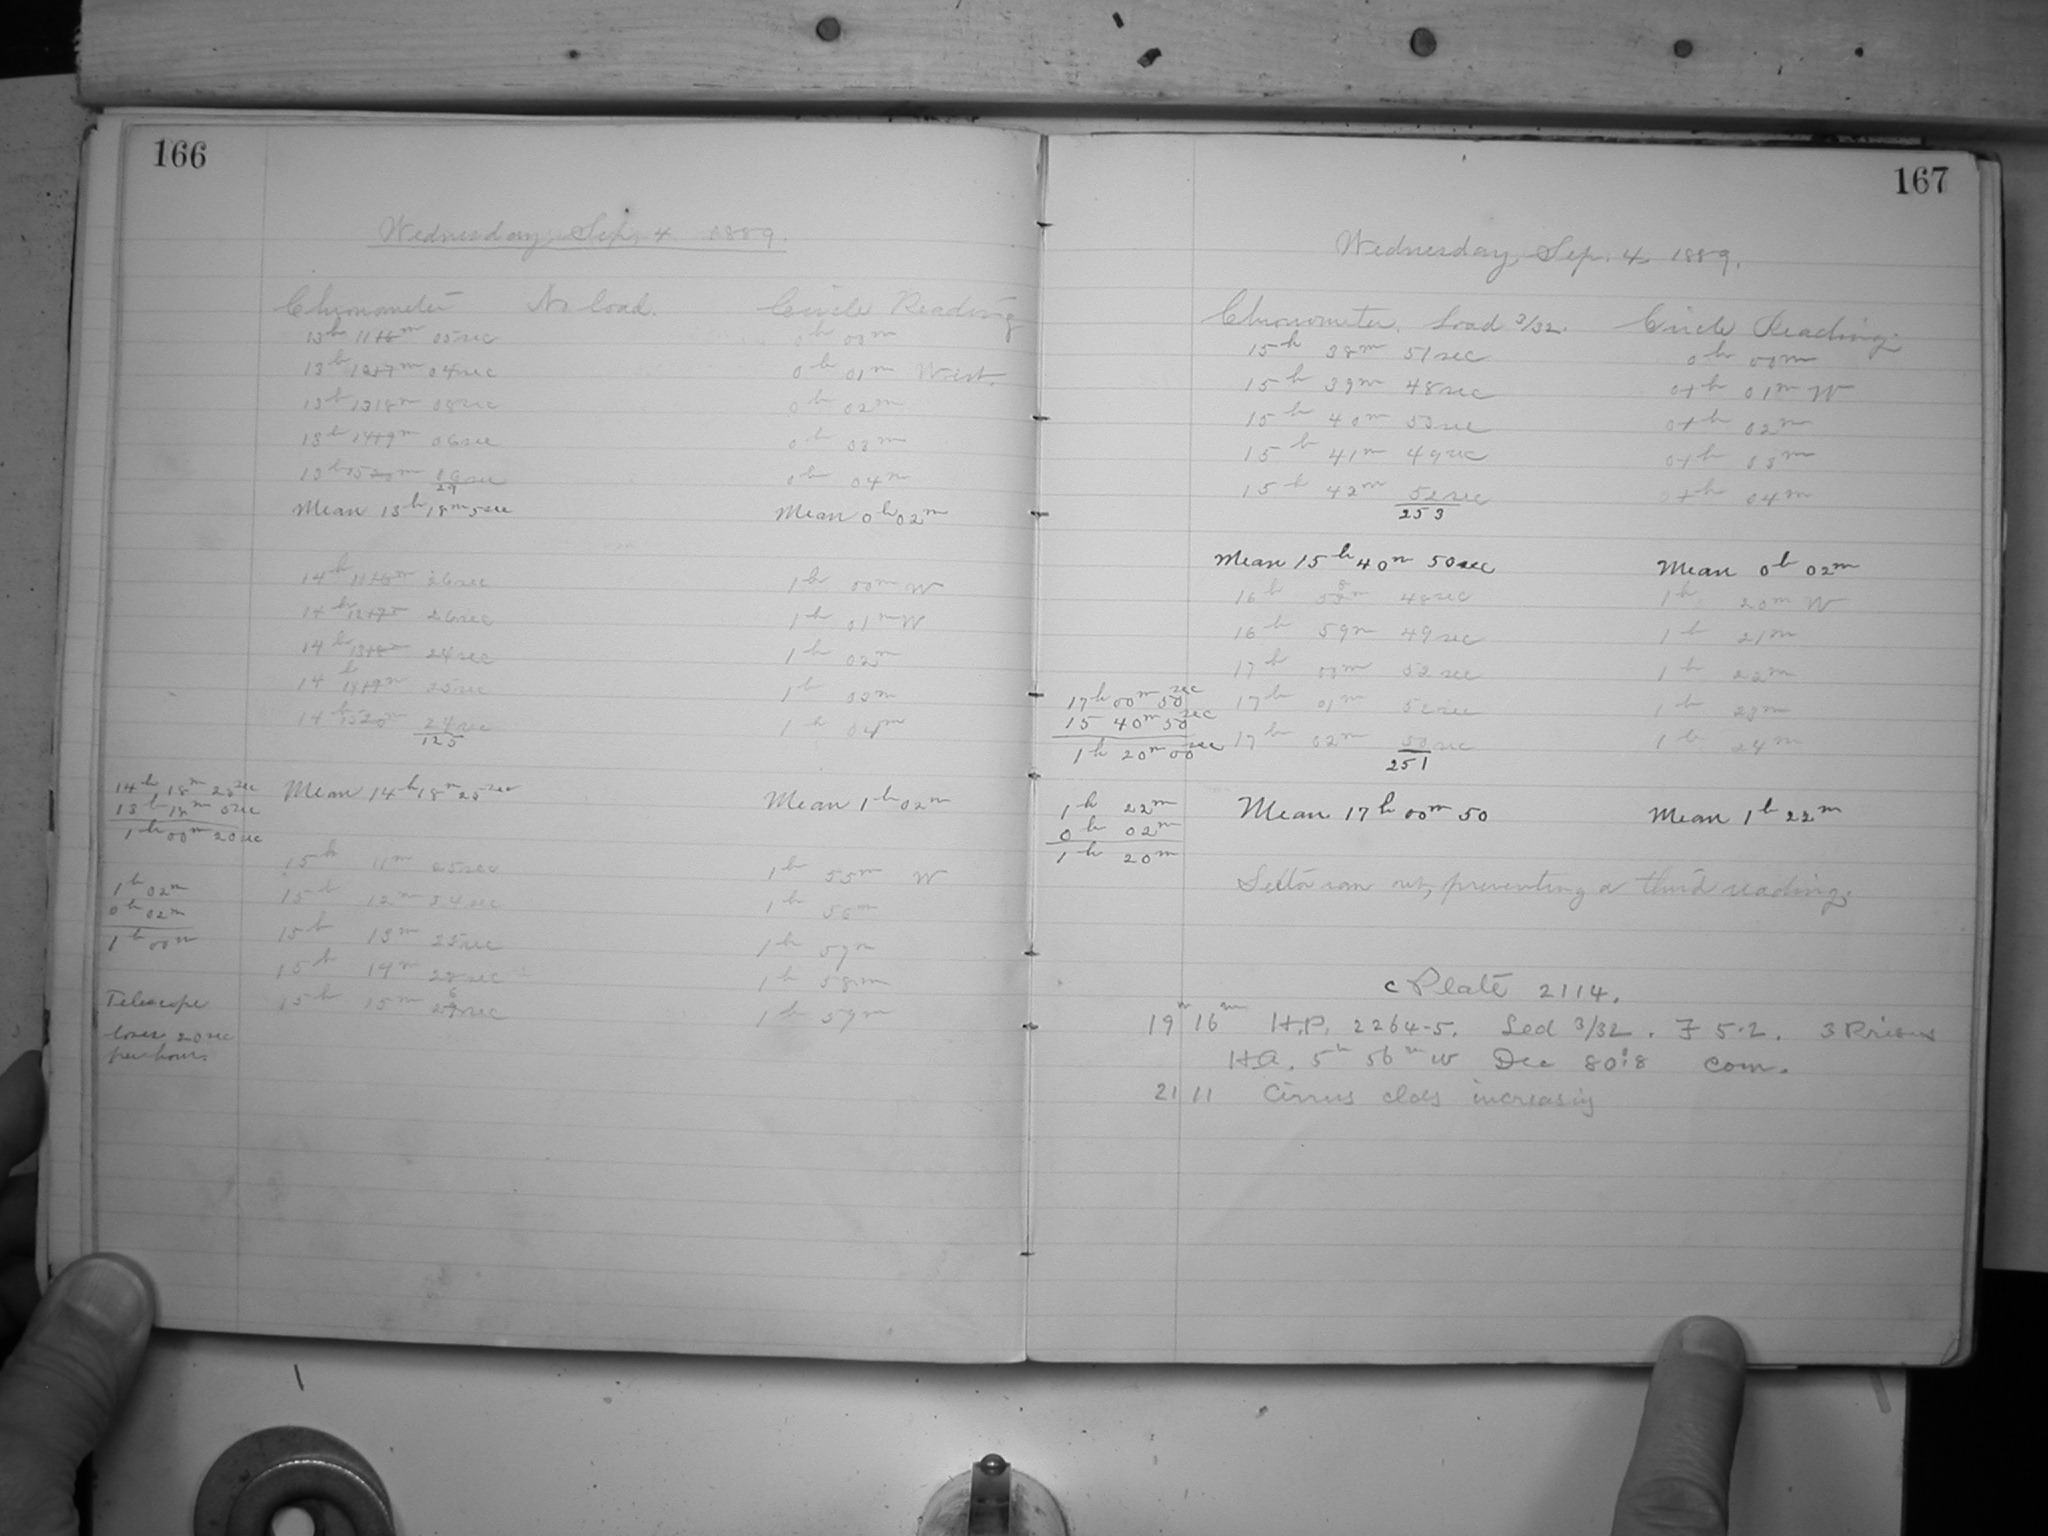 166
Wednesday, Sep. 4 1889.
Chronometer No load. Circle Reading
13h 11 16m 05sec 0h 00m
13h 12 17m 04sec 0h 01m West.
13h 13 18m 08sec 0h 02m
13h 14 19m 06sec 0h 03m
13h 15 20m 06sec 0h 04m
29
Mean 13h 18m 5sec Mean 0h 02m
14h 26sec 1h 00m W
14h 12 17m 26sec 1h 01m W
14h 13 18m 24sec 1h 02m
14h 14 19m 25sec 1h 03m
14h 15 20m 24sec 1h 04m
125
14h 18m 25sec Mean 14h 18m 25sec Mean 1h 02m
13h 18m 5sec
1h 00m 20sec
15h 11m 25sec 1h 55m W
1h 02m 15h 12m 24sec 1h 56m
0h 02m
1h 00m 15h 13m 25sec 1h 57m
15h 14m 28sec 1h 58m
Telescope 15h 15m 29sec 1h 59m
6
loses 20sec
per hour.
167
Wednesday, Sep. 4, 1889.
Chronometer. Load 3/32. Circle Reading.
15h 38m 51sec 0h 00m
15h 39m 48sec 0h 01m W
15h 40m 53sec 0h 02m
15h 41m 49sec 0h 03m
15h 42m 52sec 0h 04m
253
Mean 15h 40m 50sec Mean 0h 02m
16h 58m 48sec 1h 20m W
16h 59m 49sec 1h 21m
17h 00m 52sec 1h 22m
17h 00m 50sec 17h 01m 52sec 1h 23m
15 40m 50sec
1h 20m 00sec 17h 02m 50sec 1h 24m
251
1h 22m Mean 17h 00m 50 Mean 1h 22m
0h 02m
1h 20m
Sector ran out, preventing a third reading.
c Plate 2114.
19h 16m H.P. 2264-5. Led 3/32. F 5.2. 3 Prisms
H.A. 5h 56m W Dec 80°.8 Com.
21 11 Cirrus clds increasing